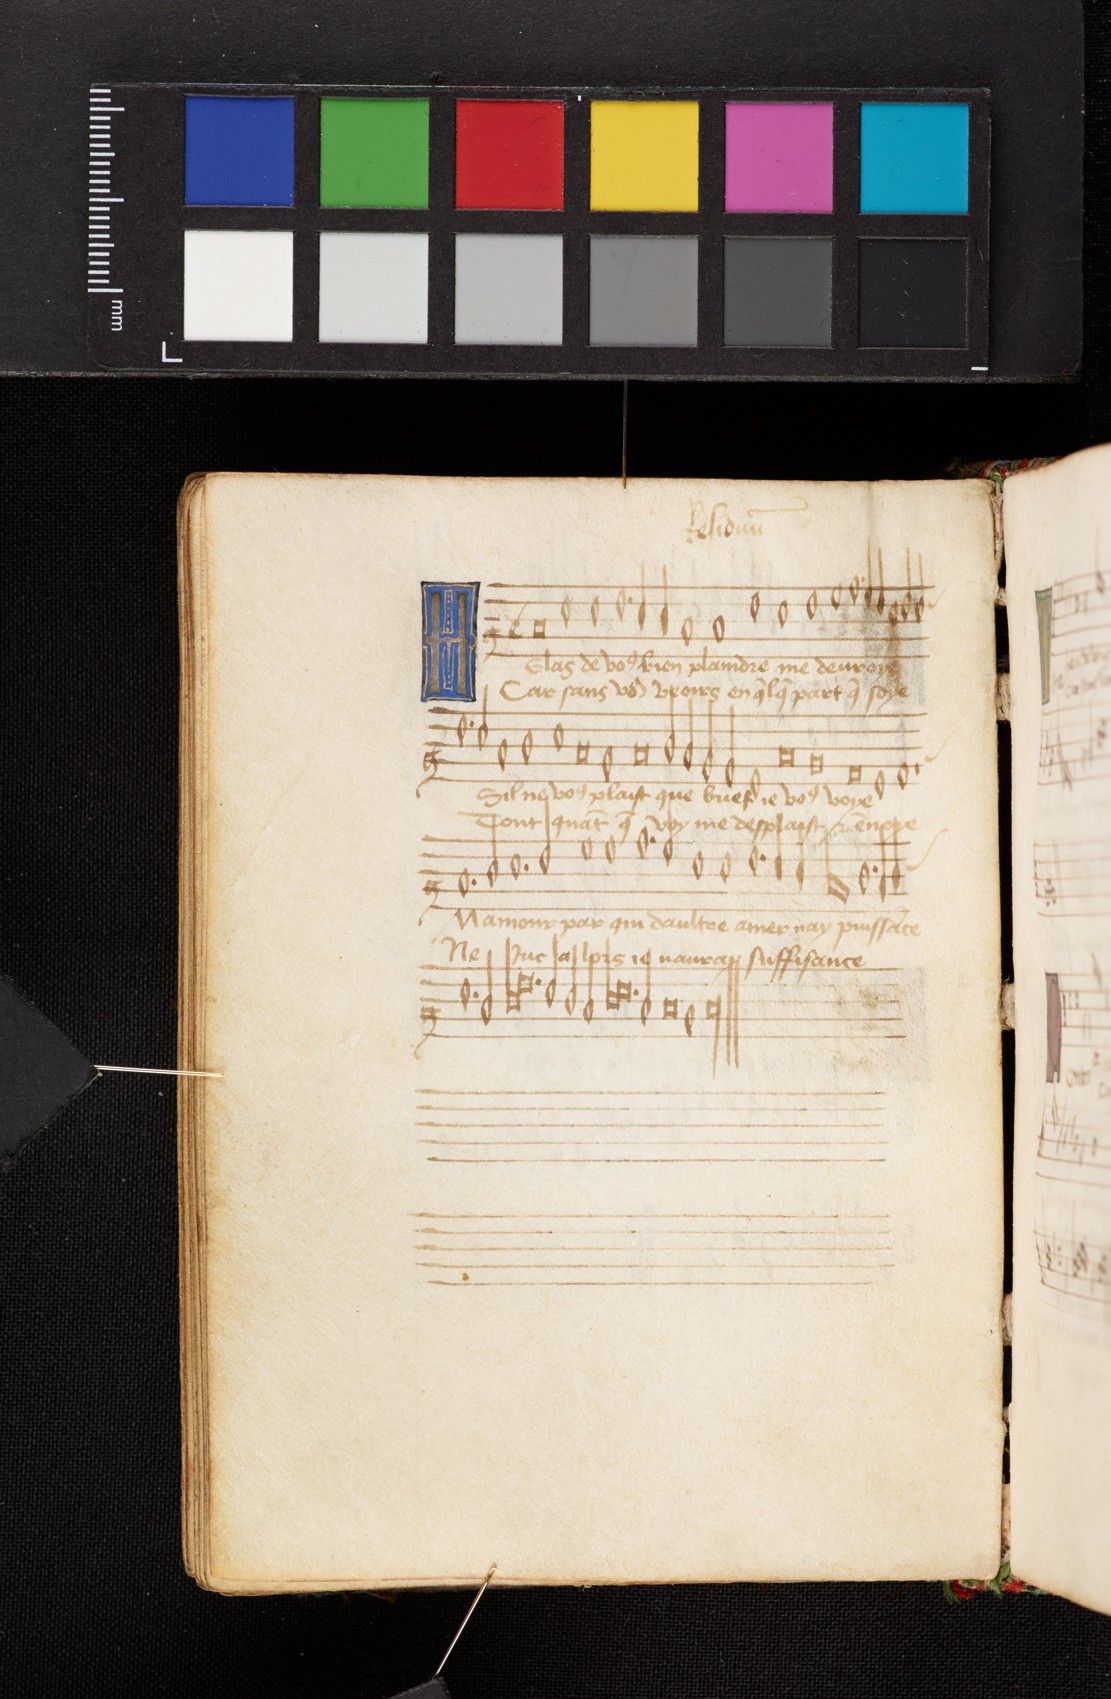 mm
Residuu͂
Helas de vo⁹ bien plaindre me deuroye
Car sans vo⁹ veoirs en q̃lq̃ part q̃ soye
Sil ne vo⁹ plaist que brief ie vo⁹ voye
Tout quãt q̃ voy me desplaist & ẽnoye
Mamour par qui daultre amer nay puissãce
Ne suffisance